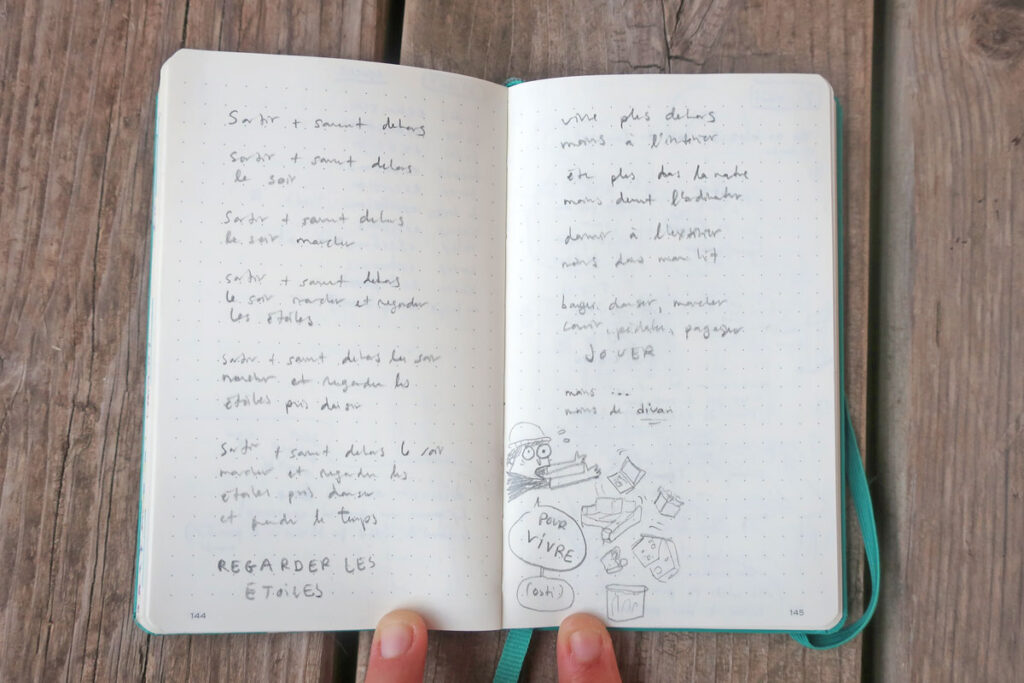 Sortir + souvent dehors
Sortir + souvent dehors
le soir
Sortir + souvent dehors
le soir marcher
Sortir + souvent dehors
le soir marcher et regarder
les étoiles
Sortir + souvent dehors le soir
marcher et regarder les
étoiles puis danser
Sortir + souvent dehors le soir
marcher et regarder les
étoiles puis danser
et perdre le temps
REGARDER LES
ÉTOILES
144
vivre plus dehors
moins à l'intérieur
être plus dans la nature
moins devant l'ordinateur
dormir à l'extérieur
moins dans mon lit
bouger, danser, marcher
courir, pédaler, pagayer
JOUER
moins ...
moins de divan
POUR
VIVRE
(osti)
145